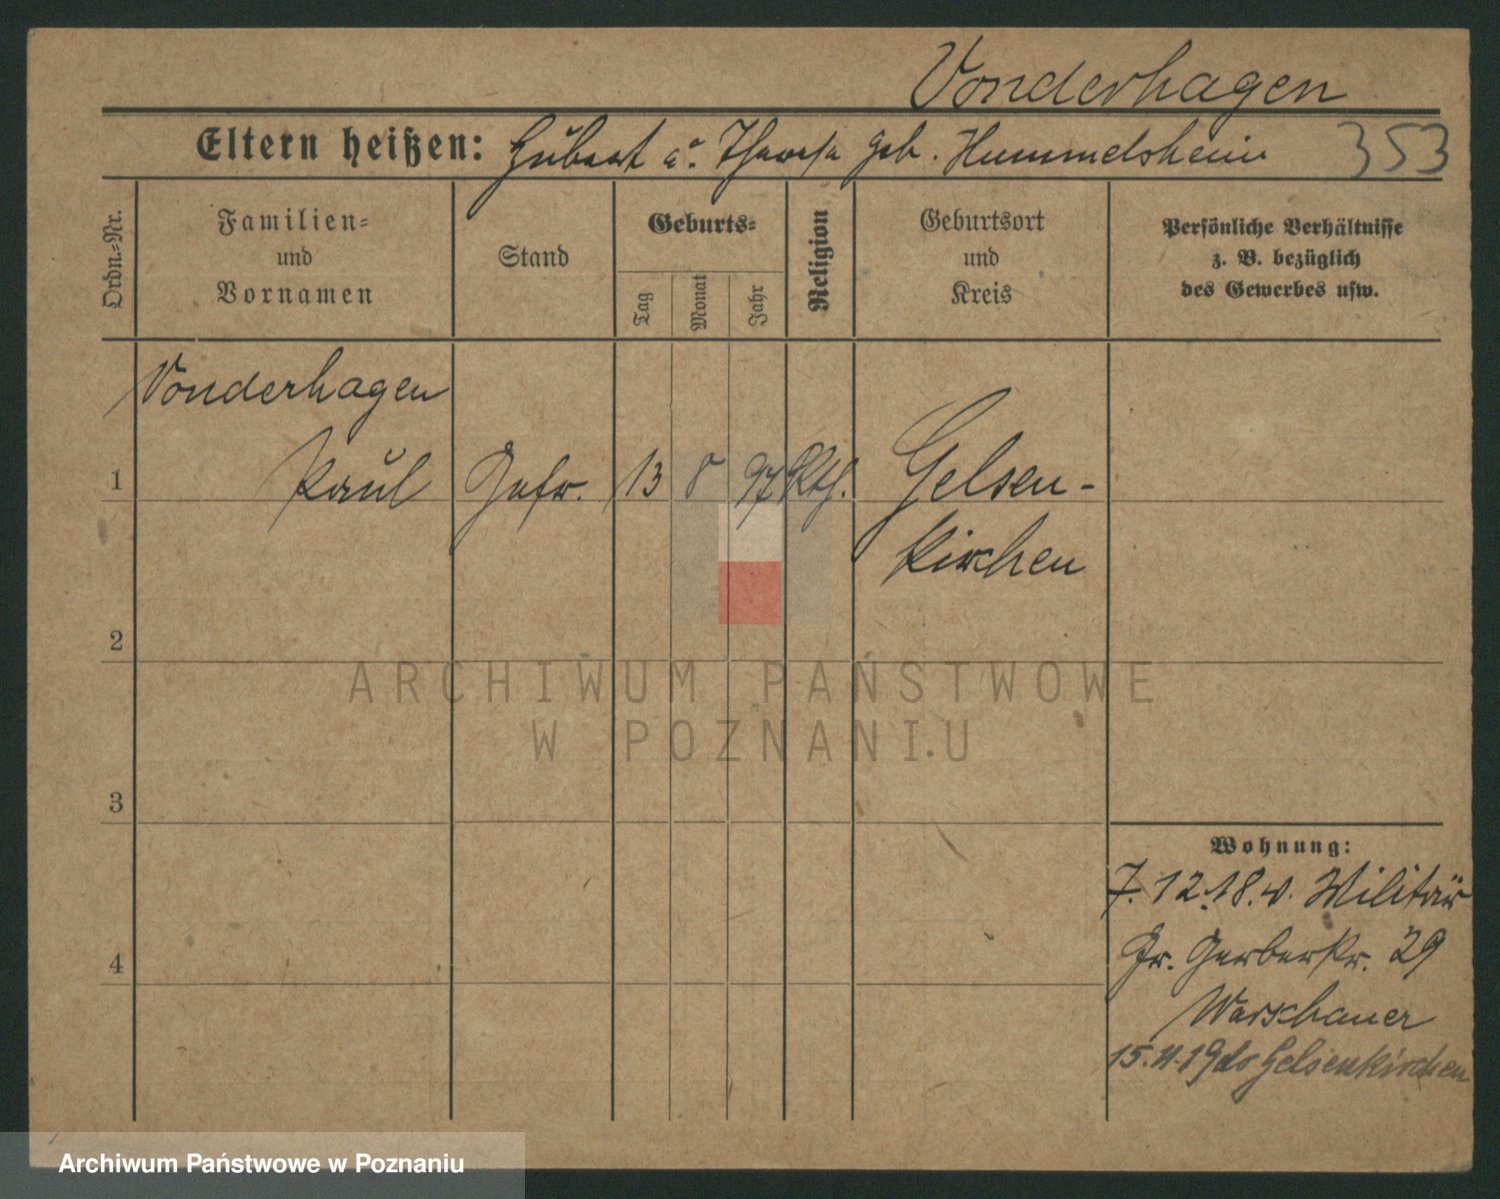 Vonderhagen
Eltern heißen: Hubert u. Theresa geb. Hummelsheim 353
Ordn.-Nr.
Familien-
und
Vornamen
Stand
Geburts-
Tag
Monat
Jahr
Religion
Geburtsort
und
Kreis
Persönliche Verhältnisse
z. B. bezüglich
des Gewerbes usw.
Vonderhagen
1 Paul Gefr. 13 8 97 Kth. Gelsen-
kirchen
2
3
4
Wohnung:
7.12.18. v. Militär
Gr. Gerberstr. 29
Warschauer
15. 19 Gelsenkirchen
ARCHIWUM PAŃSTWOWE
W POZNANIU
Archiwum Państwowe w Poznaniu